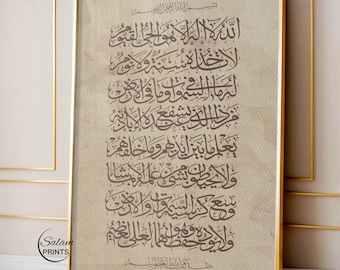 بسم الله الرحمن الرحيم
الله لا إله إلا هو الحي القيوم
لا تأخذه سنة ولا نوم
له ما في السموات وما في الأرض
من ذا الذي يشفع عنده إلا بإذنه
يعلم ما بين أيديهم وما خلفهم
ولا يحيطون بشيء من علمه إلا بما شاء
وسع كرسيه السموات والأرض
ولا يؤده حفظهما وهو العلي العظيم
Salam
PRINTS